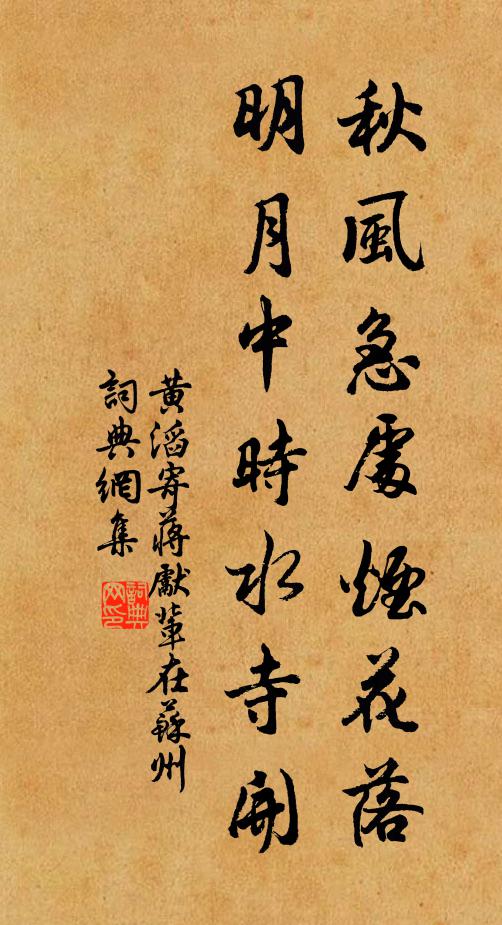 秋風急處煙花落
明月中時水寺開
黃滔寄蔣獻輩在蘇州
詞典網集
詞典網印